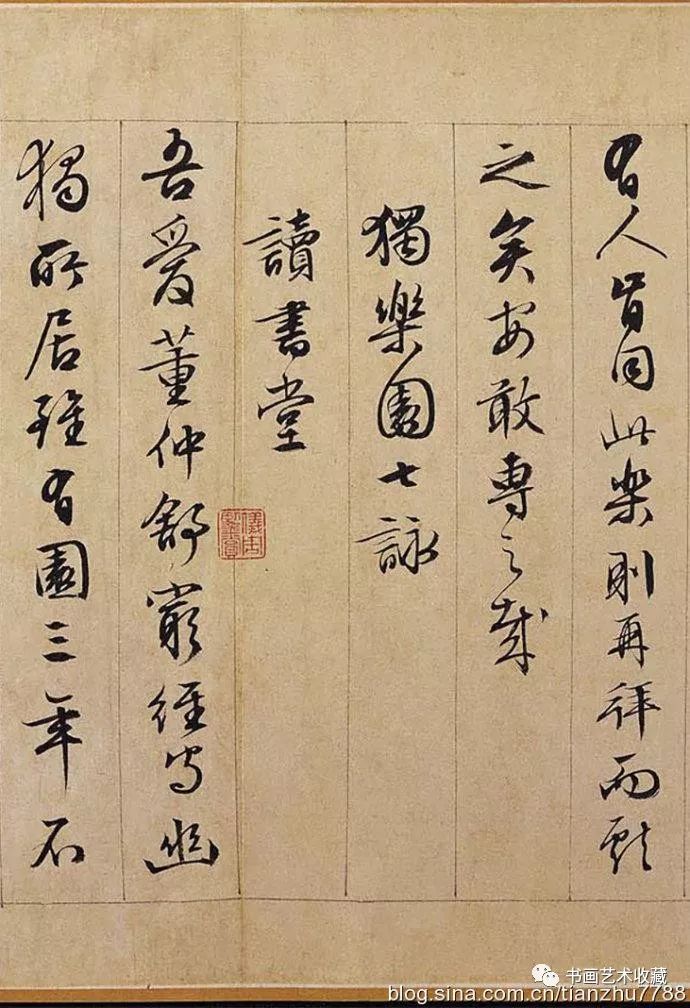 有人肯同此樂則再拜而獻
之矣安敢專之哉
獨樂園七詠
讀書堂
吾愛董仲舒窮經守幽
獨所居雖有園三年不
儀周鑒賞
书画艺术收藏
blog.sina.com.cn/tianzhu7788